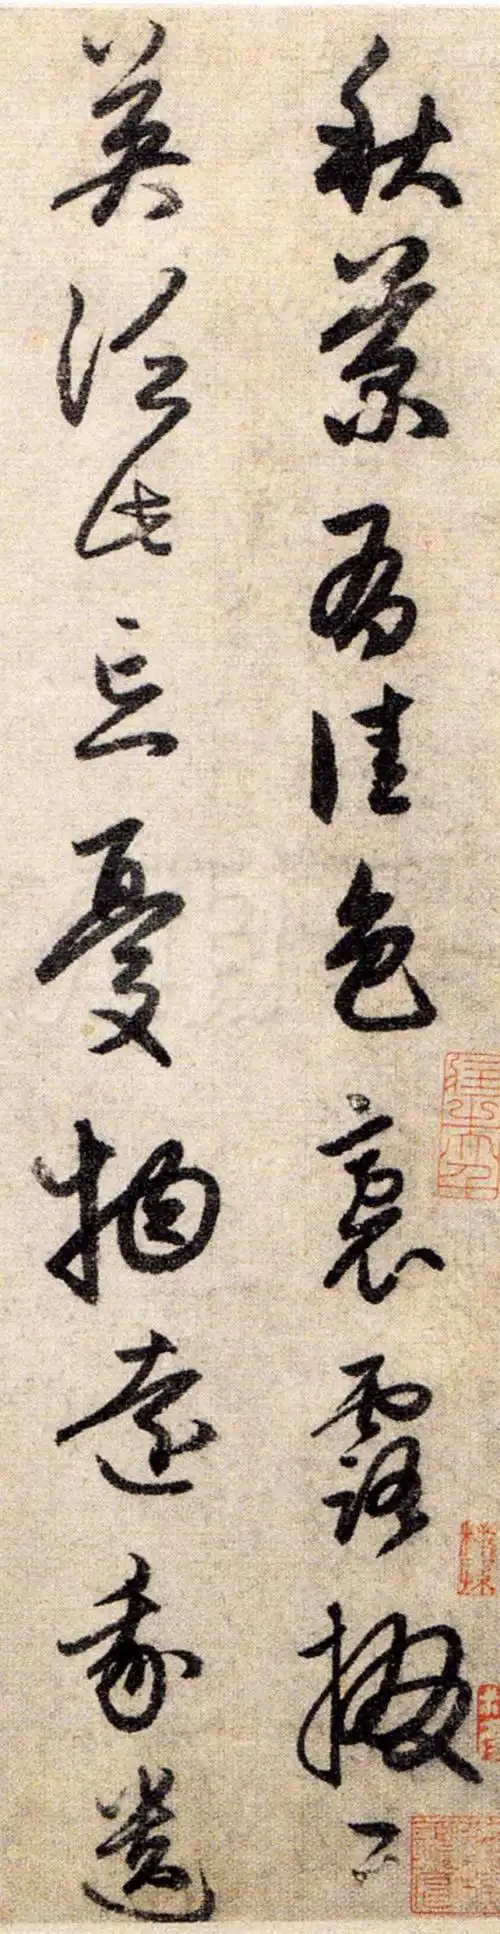 秋菊有佳色裛露掇其
英泛此忘憂物遠我遺